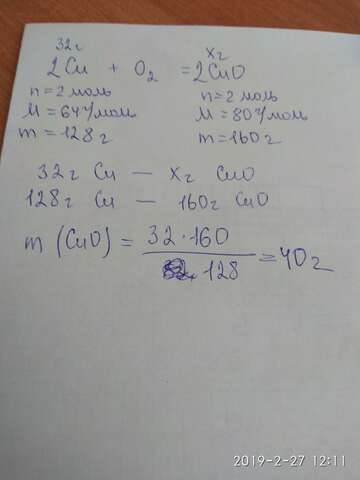 32г хг
2Cu + O₂ = 2CuO
n = 2 моль n = 2 моль
M = 64 г/моль M = 80 г/моль
m = 128 г m = 160 г
32г Cu — хг CuO
128г Cu — 160г CuO
m (CuO) = 32 · 160 / 128 = 40 г
2019-2-27 12:11